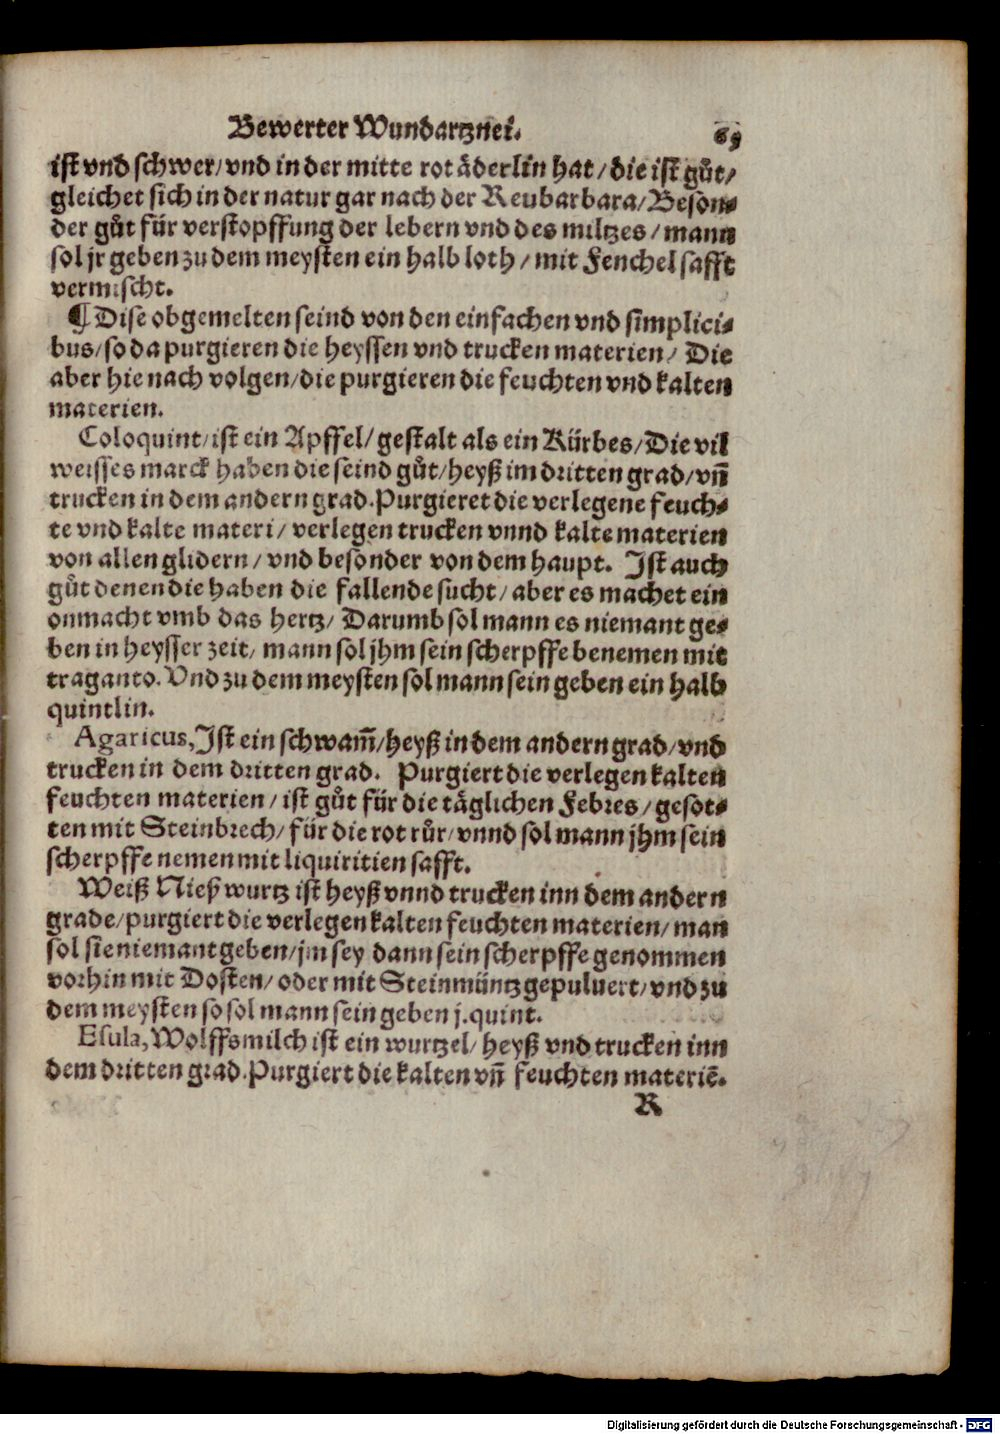 Bewerter Wundartznei. 65
ist vnd schwer/ vnd in der mitte rot äderlin hat/ die ist gůt/
gleichet sich in der natur gar nach der Reubarbara/ Beson⸗
der gůt für verstopffung der lebern vnd des miltzes/ mann
sol jr geben zu dem meysten ein halb loth/ mit Fenchel safft
vermischt.
¶ Dise obgemelten seind von den einfachen vnd simplici⸗
bus/ so da purgieren die heyssen vnd trucken materien/ Die
aber hie nach volgen/ die purgieren die feuchten vnd kalten
materien.
Coloquint/ ist ein Apffel/ gestalt als ein Kürbes/ Die vil
weisses marck haben die seind gůt/ heyß im dritten grad/ vñ
trucken in dem andern grad. Purgieret die verlegene feuch⸗
te vnd kalte materi/ verlegen trucken vnnd kalte materien
von allen glidern/ vnd besonder von dem haupt. Ist auch
gůt denen die haben die fallende sucht/ aber es machet ein
onmacht vmb das hertz/ Darumb sol mann es niemant ge⸗
ben in heysser zeit/ mann sol jhm sein scherpffe benemen mit
traganto. Vnd zu dem meysten sol mann sein geben ein halb
quintlin.
Agaricus, Ist ein schwam̃/ heyß in dem andern grad/ vnd
trucken in dem dritten grad. Purgiert die verlegen kalten
feuchten materien/ ist gůt für die täglichen Febres/ gesot⸗
ten mit Steinbrech/ für die rot růr/ vnnd sol mann jhm sein
scherpffe nemen mit liquiritien safft.
Weiß Nieß wurtz ist heyß vnnd trucken inn dem andern
grade/ purgiert die verlegen kalten feuchten materien/ man
sol sie niemant geben/ jm sey dann sein scherpffe genommen
vorhin mit Dosten/ oder mit Steinmüntz gepuluert/ vnd zu
dem meysten so sol mann sein geben j. quint.
Esula, Wolffsmilch ist ein wurtzel/ heyß vnd trucken inn
dem dritten grad. Purgiert die kalten vñ feuchten materiẽ.
R
Digitalisierung gefördert durch die Deutsche Forschungsgemeinschaft - DFG